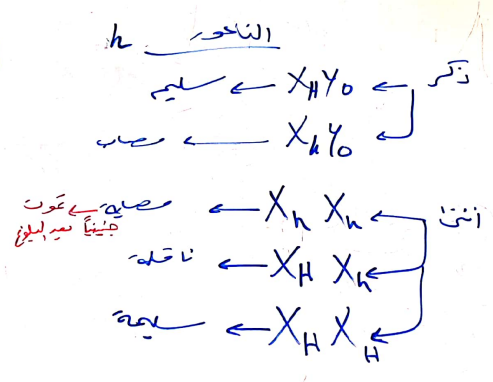 الناعور h
ذكر ← X_H Y_0 ← سليم
← X_h Y_0 ← مصاب
انثى ← X_h X_h ← مصابة ← تموت
جنينياً بعد البلوغ
← X_H X_h ← ناقلة
← X_H X_H ← سليمة